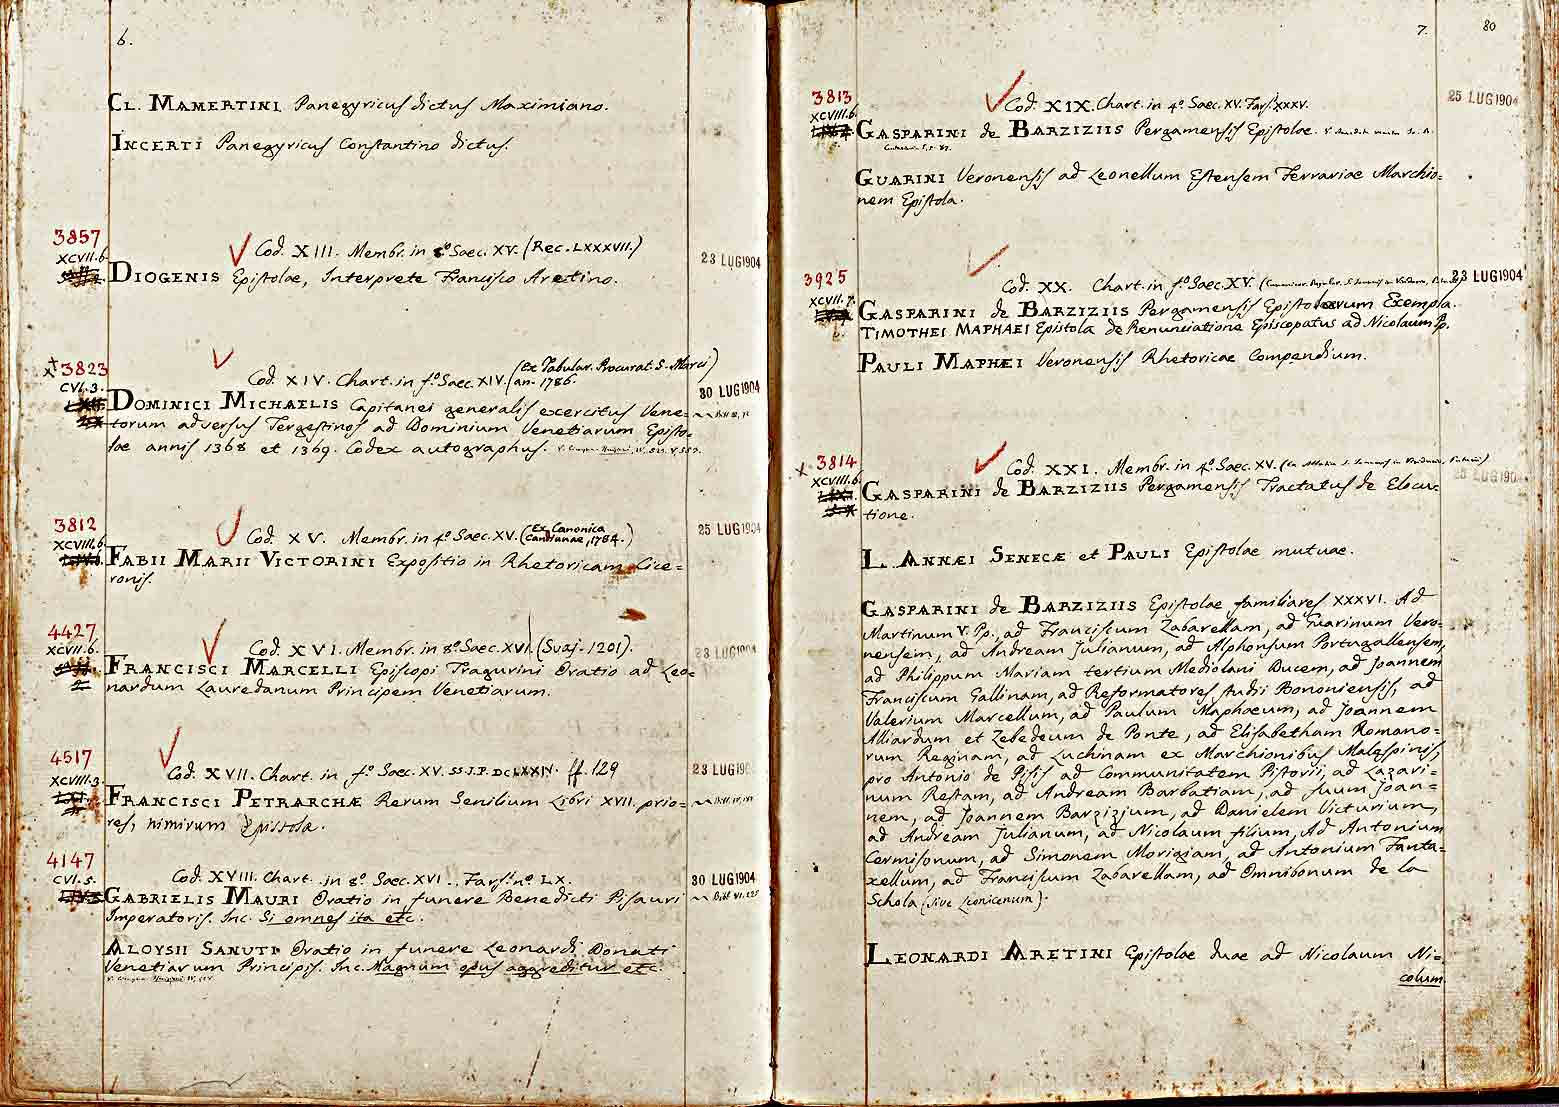 6.
CL. MAMERTINI Panegyricus dictus Maximiano.
INCERTI Panegyricus Constantino dictus.
3857
XCVII.6
Cod. XIII. Membr. in 8º Saec. XV. (Rec. LXXXVII.)
23 LUG 1904
DIOGENIS Epistolae, Interprete Francisco Aretino.
3823
CVI.3.
Cod. XIV. Chart. in fº Saec. XIV. (Ex Tabular. Procurat. S. Marci)
an. 1786.
30 LUG 1904
DOMINICI MICHAELIS Capitanei generalis exercitus Vene=
torum adversus Tergestinos ad Dominium Venetiarum Episto=
lae annis 1368 et 1369. Codex autographus.
3812
XCVIII.6
Cod. XV. Membr. in 4º Saec. XV. (Ex Canonica
Candianae, 1784.)
25 LUG 1904
FABII MARII VICTORINI Expositio in Rhetoricam Cice=
ronis.
4427
XCVII.6.
Cod. XVI. Membr. in 8º Saec. XVI. (Svaj. 1201).
23 LUG 1904
FRANCISCI MARCELLI Episcopi Tragurini Oratio ad Leo=
nardum Lauredanum Principem Venetiarum.
4517
XCVIII.3.
Cod. XVII. Chart. in fº Saec. XV. SS. J. P. DCLXXIV. ff. 129
23 LUG 190
FRANCISCI PETRARCHÆ Rerum Senilium Libri XVII. prio=
res, nimirum Epistolæ.
4147
CVI.5.
Cod. XVIII. Chart. in 8º Saec. XVI. Fars. nº LX.
30 LUG 1904
GABRIELIS MAURI Oratio in funere Benedicti Pisauri
Imperatoris. Inc. Si omnes ita etc.
ALOYSII SANUTI Oratio in funere Leonardi Donati
Venetiarum Principis. Inc. Magnum opus aggreditur etc.
7.
80
3813
XCVIII.6.
Cod. XIX. Chart. in 4º Saec. XV. Fars. XXXV.
25 LUG 1904
GASPARINI de BARZIZIIS Pergamensis Epistolae.
GUARINI Veronensis ad Leonellum Estensem Ferrariae Marchio=
nem Epistola.
3925
XCVII.7.
Cod. XX. Chart. in fº Saec. XV.
23 LUG 1904
GASPARINI de BARZIZIIS Pergamensis Epistolarum Exempla.
TIMOTHEI MAPHAEI Epistola de Renunciatione Episcopatus ad Nicolaum Pp.
PAULI MAPHÆI Veronensis Rhetoricae Compendium.
3814
XCVIII.6.
Cod. XXI. Membr. in 4º Saec. XV.
25 LUG 190
GASPARINI de BARZIZIIS Pergamensis Tractatus de Elocu=
tione.
L. ANNÆI SENECÆ et PAULI Epistolae mutuae.
GASPARINI de BARZIZIIS Epistolae familiares XXXVI. Ad
Martinum V. Pp., ad Franciscum Zabarellam, ad Guarinum Vero=
nensem, ad Andream Julianum, ad Alphonsum Portugallensem,
ad Philippum Mariam tertium Mediolani Ducem, ad Joannem
Franciscum Gallinam, ad Reformatores studii Bononiensis, ad
Valerium Marcellum, ad Paulum Maphaeum, ad Joannem
Alliardum et Zebedeum de Ponte, ad Elisabetham Romano=
rum Reginam, ad Luchinam ex Marchionibus Malespinis,
pro Antonio de Pisis ad Communitatem Pistorii, ad Lazari=
num Restam, ad Andream Barbatiam, ad suum Joan=
nem, ad Joannem Barzizium, ad Danielem Victurium,
ad Andream Julianum, ad Nicolaum filium, Ad Antonium
Cermisonum, ad Simonem Morigiam, ad Antonium Fanta=
xellum, ad Franciscum Zabarellam, ad Omnibonum de la
Schola (sive Leonicenum).
LEONARDI ARETINI Epistolae duae ad Nicolaum Ni=
colum